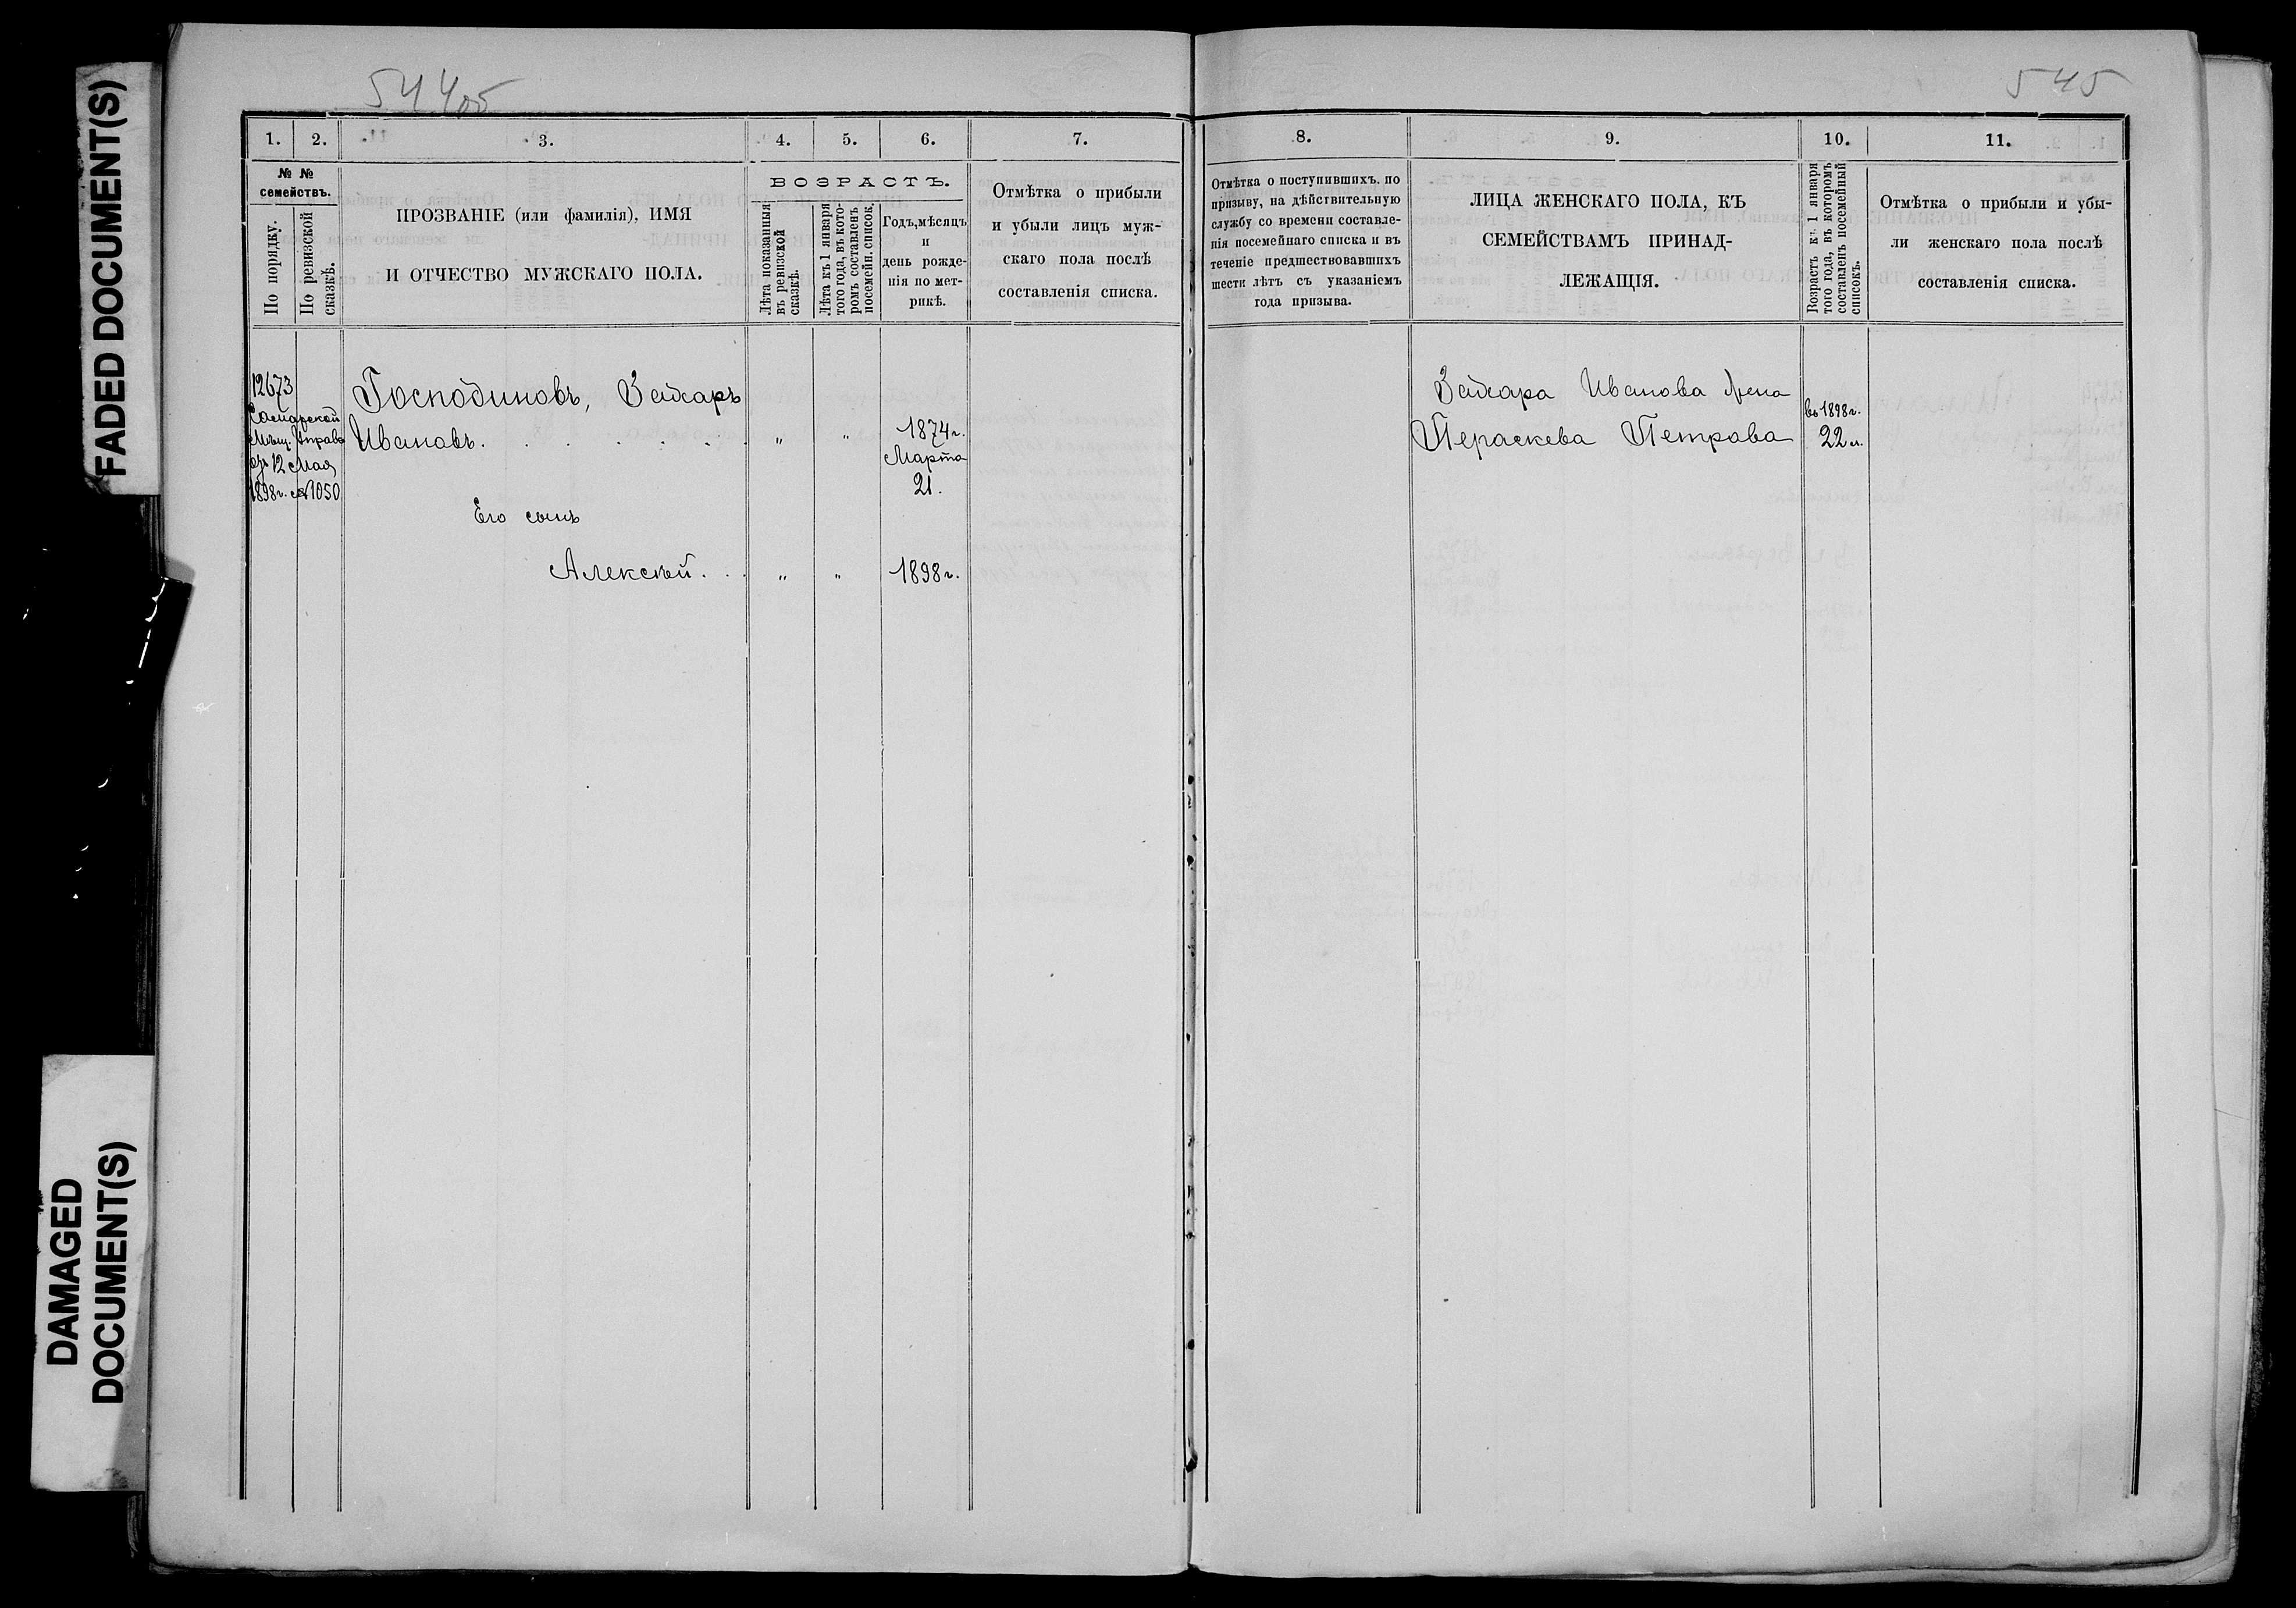 FADED DOCUMENT(S)
DAMAGED
DOCUMENT(S)
544об
1. 2. 3. 4. 5. 6. 7.
№ №
семействъ.
По порядку.
По ревизской
сказкѣ.
ПРОЗВАНІЕ (или фамилія), ИМЯ
И ОТЧЕСТВО МУЖСКАГО ПОЛА.
ВОЗРАСТЪ.
Лѣта показанныя
въ ревизской
сказкѣ.
Лѣта къ 1 января
того года, въ кото-
ромъ составленъ
посемейн. список.
Годъ, мѣсяцъ
и
день рожде-
нія по мет-
рикѣ.
Отмѣтка о прибыли
и убыли лицъ муж-
скаго пола послѣ
составленія списка.
12673
Самарской
Мѣщ. Управы
отъ 12 Мая
1898г. № 1050
Господиновъ, Захаръ
Ивановъ. . . . . . . " " 1874г.
Марта
21.
Его сынъ
Алексѣй. . . " " 1898г.
545
8. 9. 10. 11.
Отмѣтка о поступившихъ по
призыву, на дѣйствительную
службу со времени составле-
нія посемейнаго списка и въ
теченіе предшествовавшихъ
шести лѣтъ съ указаніемъ
года призыва.
ЛИЦА ЖЕНСКАГО ПОЛА, КЪ
СЕМЕЙСТВАМЪ ПРИНАД-
ЛЕЖАЩІЯ.
Возрастъ къ 1 января
того года, въ которомъ
составленъ посемейный
списокъ.
Отмѣтка о прибыли и убы-
ли женскаго пола послѣ
составленія списка.
Захара Иванова жена
Пераскева Петрова
въ 1898г.
22 л.